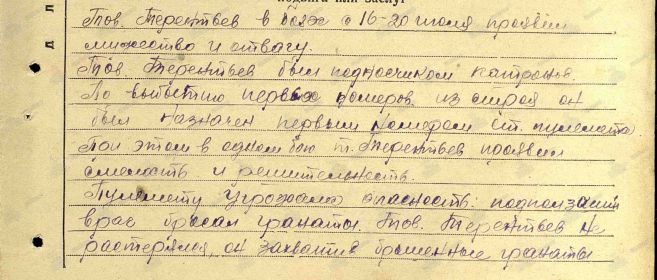 Тов. Терентьев в боях с 16-20 июля проявил
мужество и отвагу.
Тов Терентьев был подносчиком патронов.
По выбытию первых номеров из строя он
был назначен первым номером ст. пулемета.
При этом в одном бою т. Терентьев проявил
смелость и решительность.
Пулемету угрожала опасность: подползший
враг бросал гранаты. Тов. Терентьев не
растерялся, он захватив брошенные гранаты